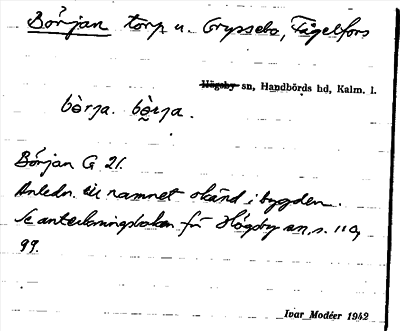 Början torp u. Gryssebo, Fågelfors
Högsby sn, Handbörds hd, Kalm. l.
bòrja. bò̤rja.
Början G 21.
Anledn. till namnet okänd i bygden.
Se anteckningsboken för Högsby sn, s. 11 o,
99.
Ivar Modéer 1942